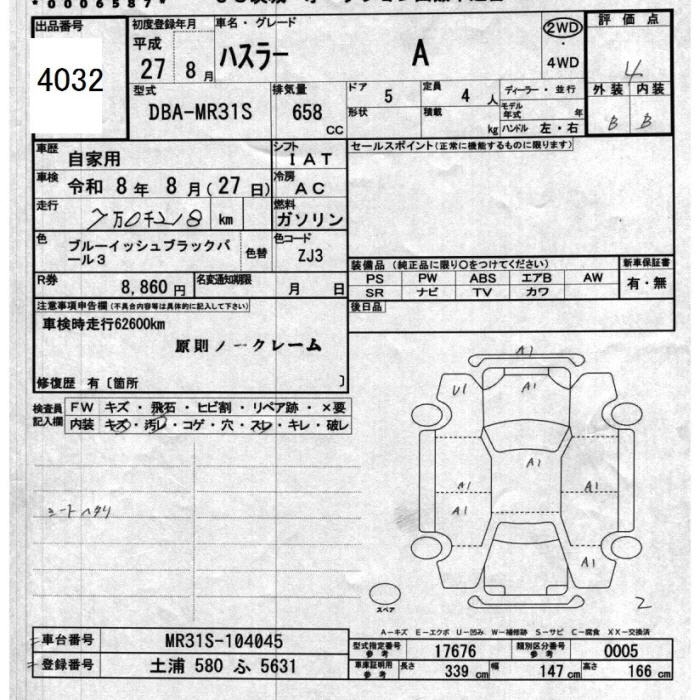 *0006587*
出品番号
4032
初度登録年月
平成
27 8月
車名・グレード
ハスラー A
2WD
・
4WD
評価点
4
外装 内装
B B
型式
DBA-MR31S
排気量
658
CC
ドア
5
定員
4 人
形状
積載
kg
ディーラー・並行
モデル
年式 年
ハンドル 左・右
車歴
自家用
シフト
IAT
セールスポイント(正常に機能するものに限ります)
車検
令和 8年 8月(27日)
冷房
AC
走行
7万0千218 km
燃料
ガソリン
色
ブルーイッシュブラックパ
ール3
色替
色コード
ZJ3
装備品 (純正品に限り○をつけてください)
PS PW ABS エアB AW
SR ナビ TV カワ
新車保証書
有・無
R券
8,860円
名変通知期限
月 日
後日品
注意事項申告欄(不具合内容等は具体的に記入して下さい)
車検時走行62600km
原則ノークレーム
修復歴 有〔箇所 〕
検査員
記入欄
FW キズ・飛石・ヒビ割・リペア跡・×要
内装 キズ・汚レ・コゲ・穴・スレ・キレ・破レ
シートヘタリ
A1
U1
A1
A1
A1
A1
A1
A1
スペア
2
A-キズ E-エクボ U-凹み W-補修跡 S-サビ C-腐食 XX-交換済
車台番号
MR31S-104045
型式指定番号
参考
17676
類別区分番号
参考
0005
登録番号
土浦 580 ふ 5631
車庫証明用
参考
長さ
339 cm
幅
147 cm
高さ
166 cm